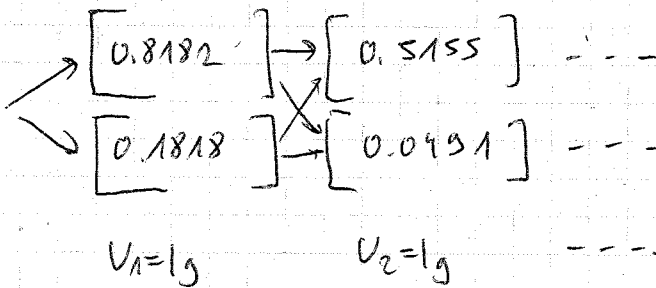 [0.8182] → [0.5155] - - -
[0.1818] → [0.0491] - - -
U₁=lg U₂=lg - - -